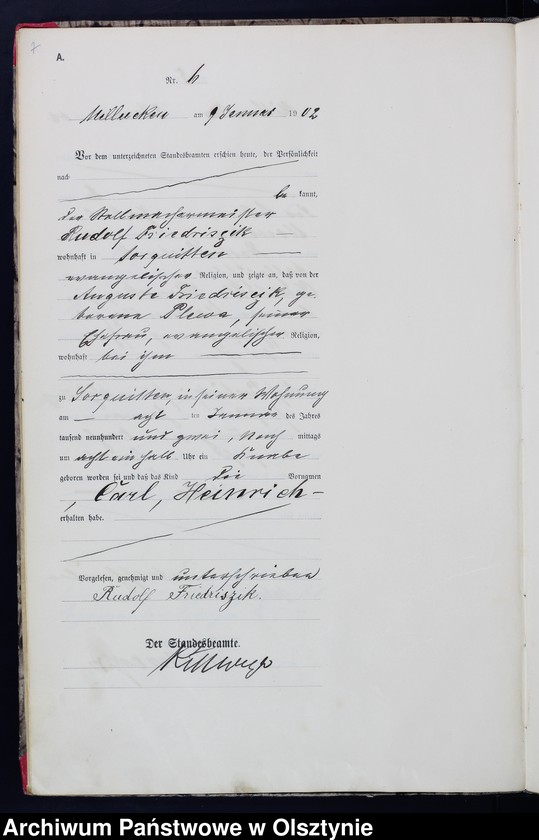 7
A.
Nr. 6
am 9 Januar 1902
Vor dem unterzeichneten Standesbeamten erschien heute, der Persönlichkeit
nach
be kannt,
der Stellmachermeister
Rudolf Friedriszik
wohnhaft in Sorquitten
evangelischer Religion, und zeigte an, daß von der
Auguste Friedriszik, ge-
borene Plewa, seiner
Ehefrau, evangelischer Religion,
wohnhaft bei ihm
zu Sorquitten, in seiner Wohnung
am acht ten Januar des Jahres
tausend neunhundert und zwei, Nach mittags
um acht ein halb Uhr ein Knabe
geboren worden sei und daß das Kind die Vornamen
Carl, Heinrich
erhalten habe.
Vorgelesen, genehmigt und unterschrieben
Rudolf Friedriszik.
Der Standesbeamte.
Archiwum Państwowe w Olsztynie